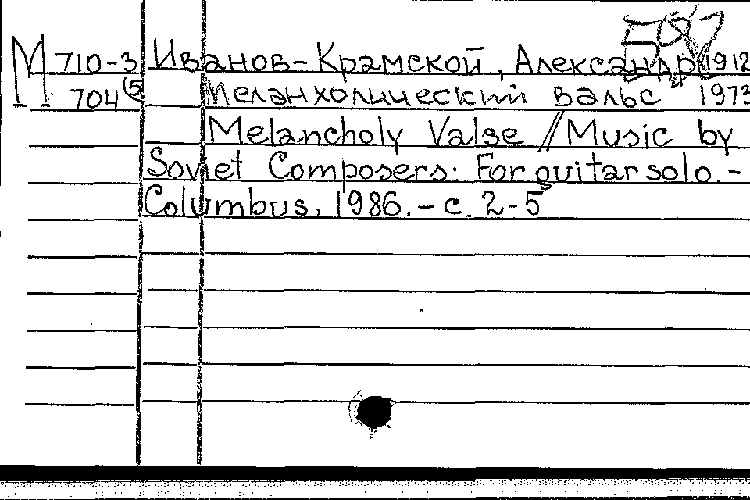 М 710-3 Иванов-Крамской, Александр 1912
704(5 Меланхолический вальс 1973
Melancholy Valse // Music by
Soviet Composers: For guitar solo. -
Columbus, 1986. - с. 2-5